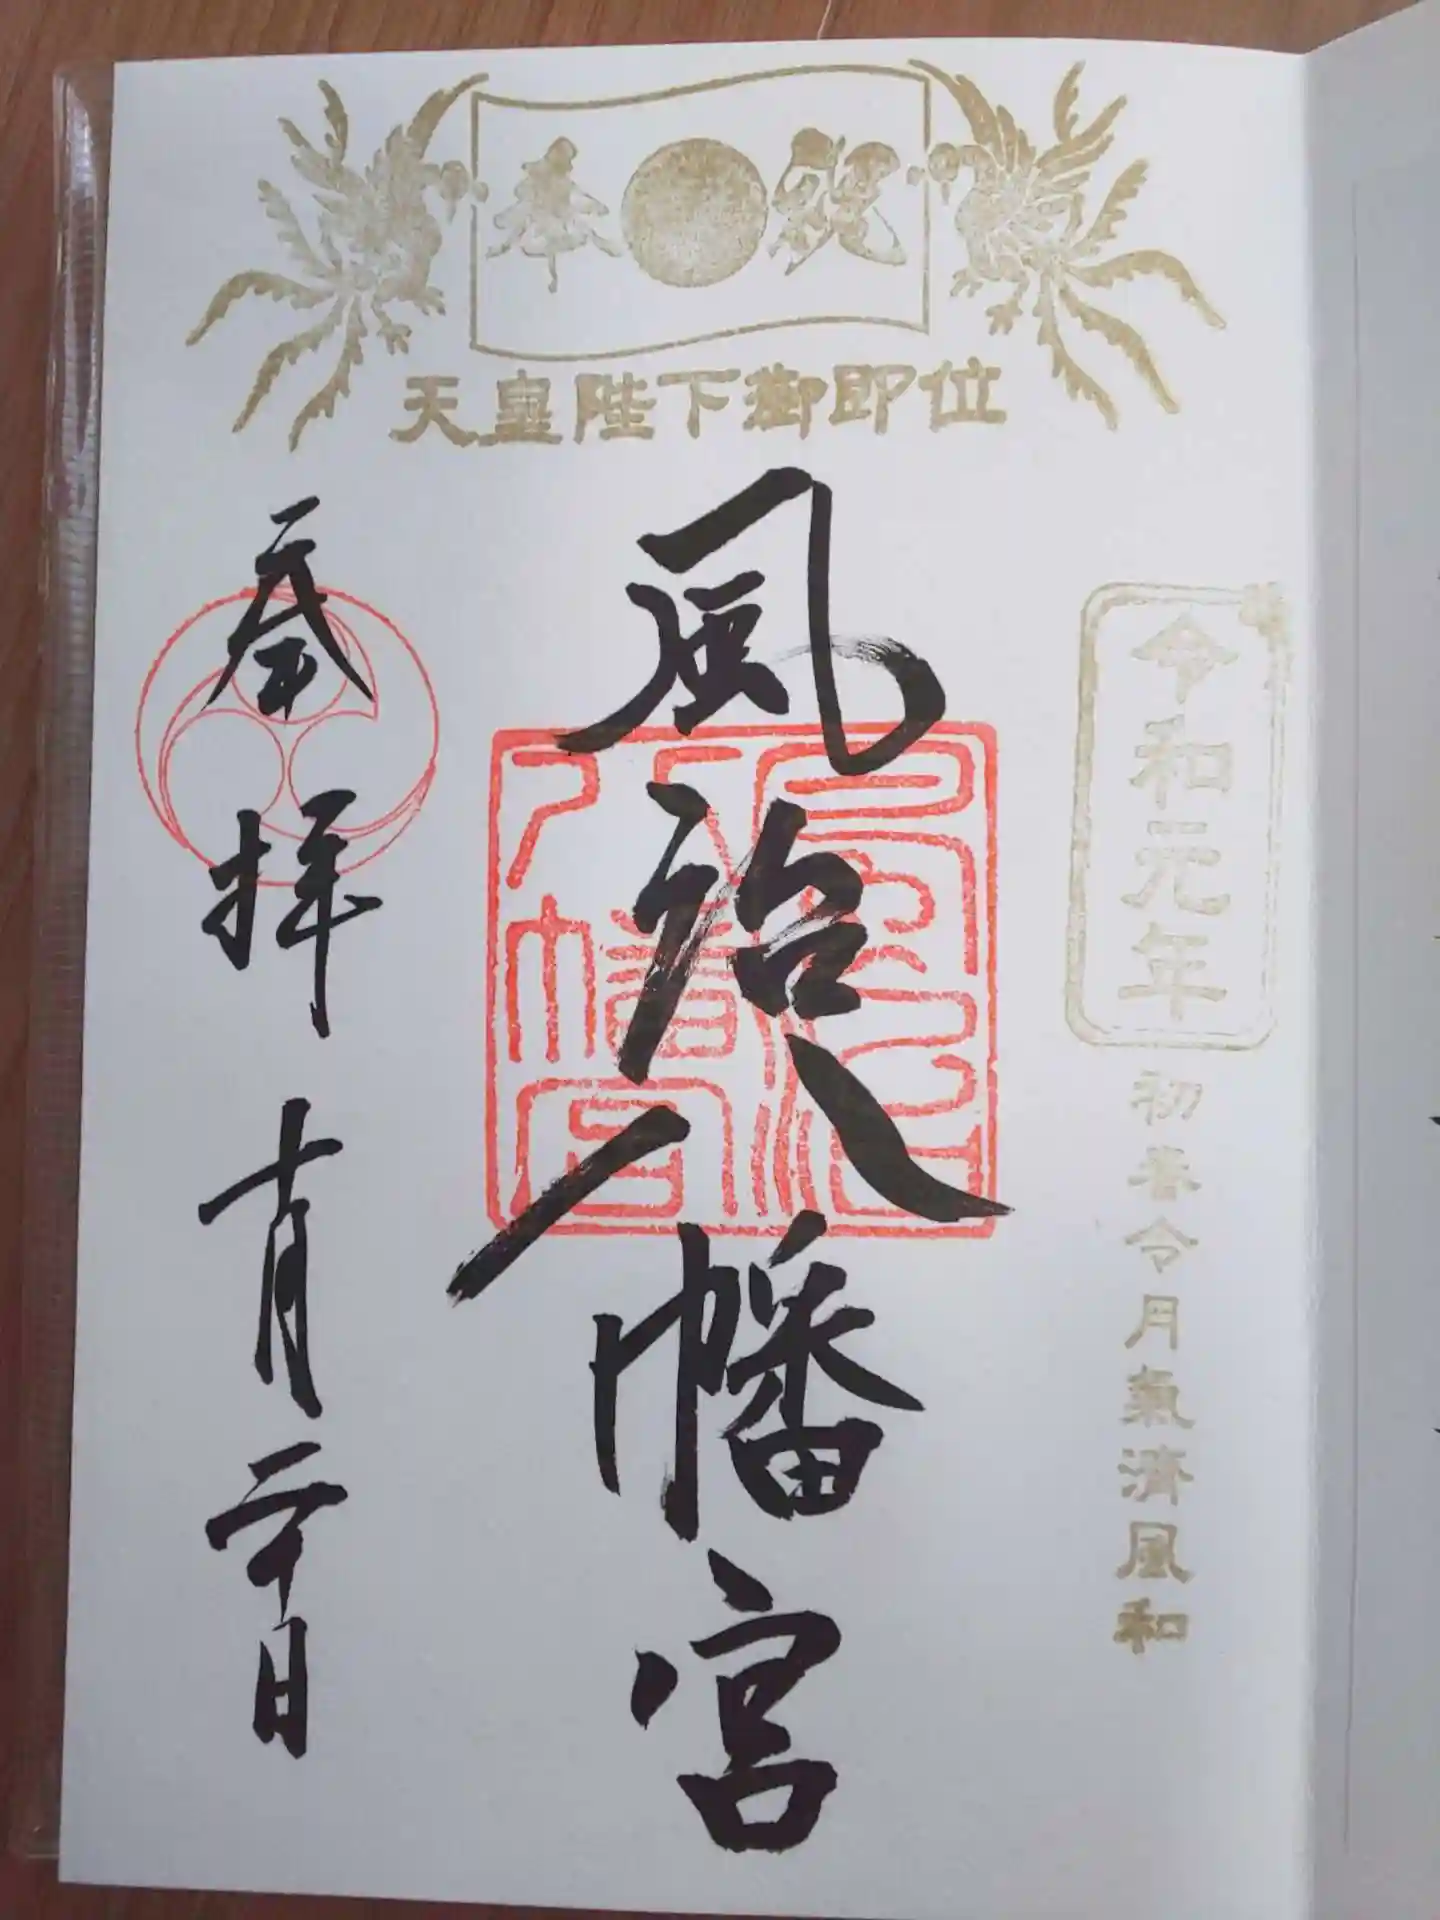 奉祝
天皇陛下御即位
令和元年
初春令月氣淯風和
風治八幡宮
奉拝
十月二十日
風治八幡宮